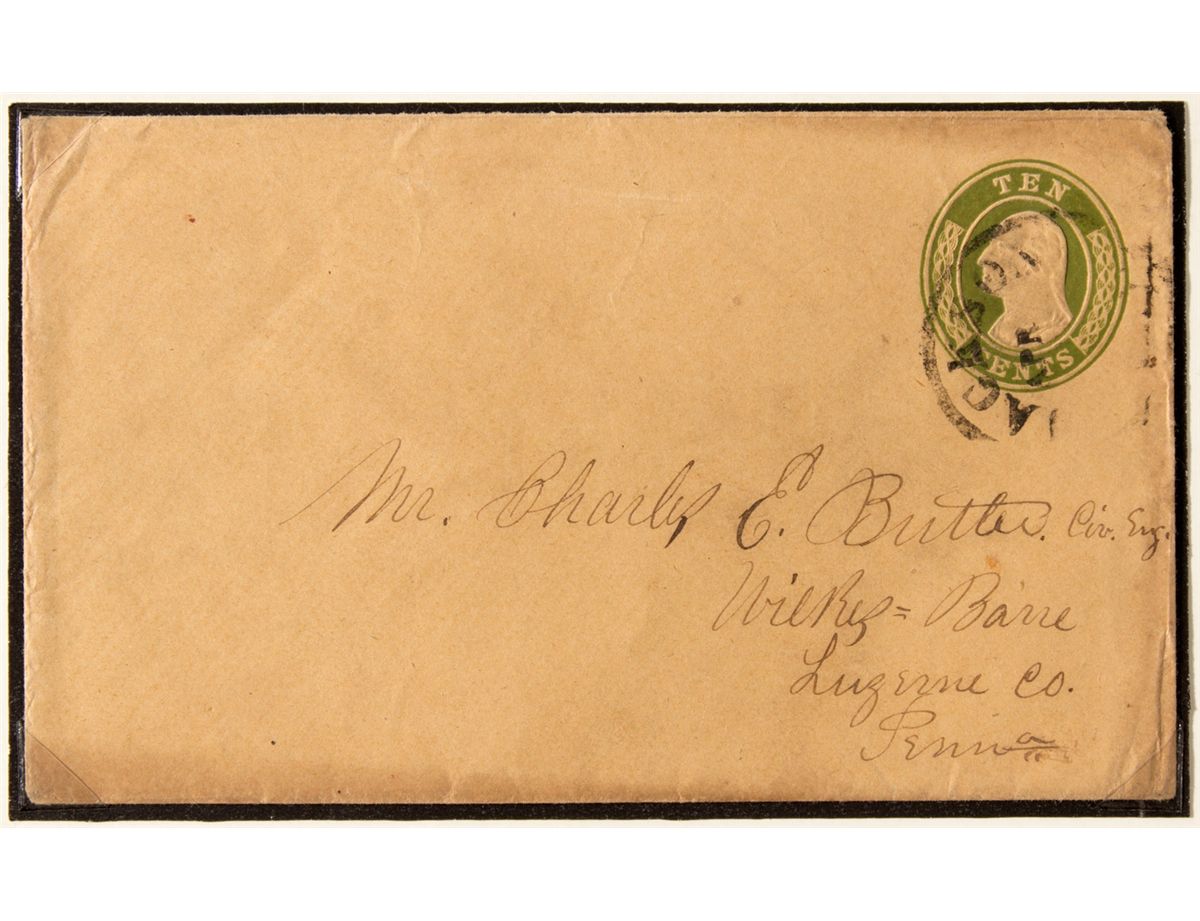 TEN
CENTS
JACKSON
APR
Mr. Charles E. Butler. Civ. Eng.
Wilkes=Barre
Luzerne Co.
Penna